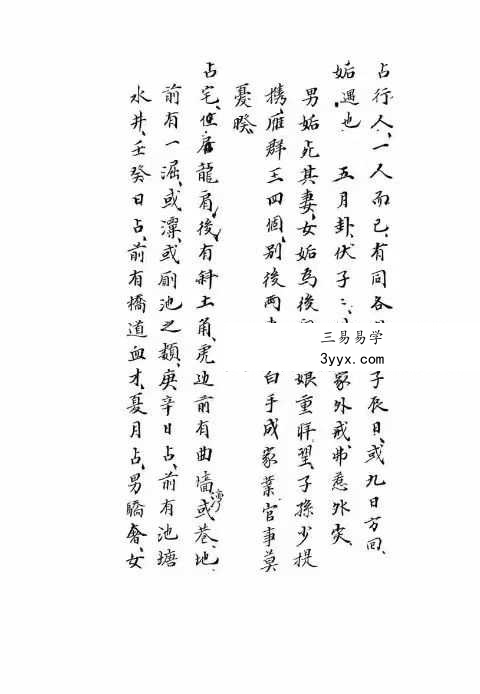 占行人、一人而已、有同各
子辰日、或九日方回、
姤遇也 五月卦、伏子二、
家外戒、弗惹外突、
男姤死其妻、女姤為後
娘重拜堂、子孫少提
携、雁群三四個、別後兩
白手成家業、官事莫
憂睽
占宅、但居龍肩、後有斜土角、虎边前有曲墻或巷、地、
湾
前有一漏、或凛、或廁池之類、庚辛日占、前有池塘
水井、壬癸日占、前有橋道血才、夏月占、男驕奢、女
三易易学
3yyx.com